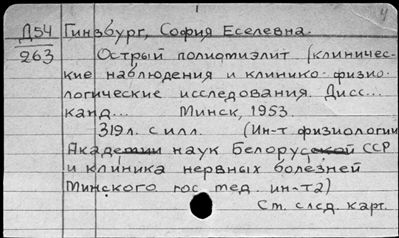 Д54 Гинзбург, София Еселевна.
263 Острый полиомиэлит (клиничес-
кие наблюдения и клинико-физио-
логические исследования. Дисс...
канд... Минск, 1953.
319л. с илл. (Ин-т физиологии
Академии наук Белорусской ССР
и клиника нервных болезней
Минского гос. мед. ин-та)
См. след. карт.